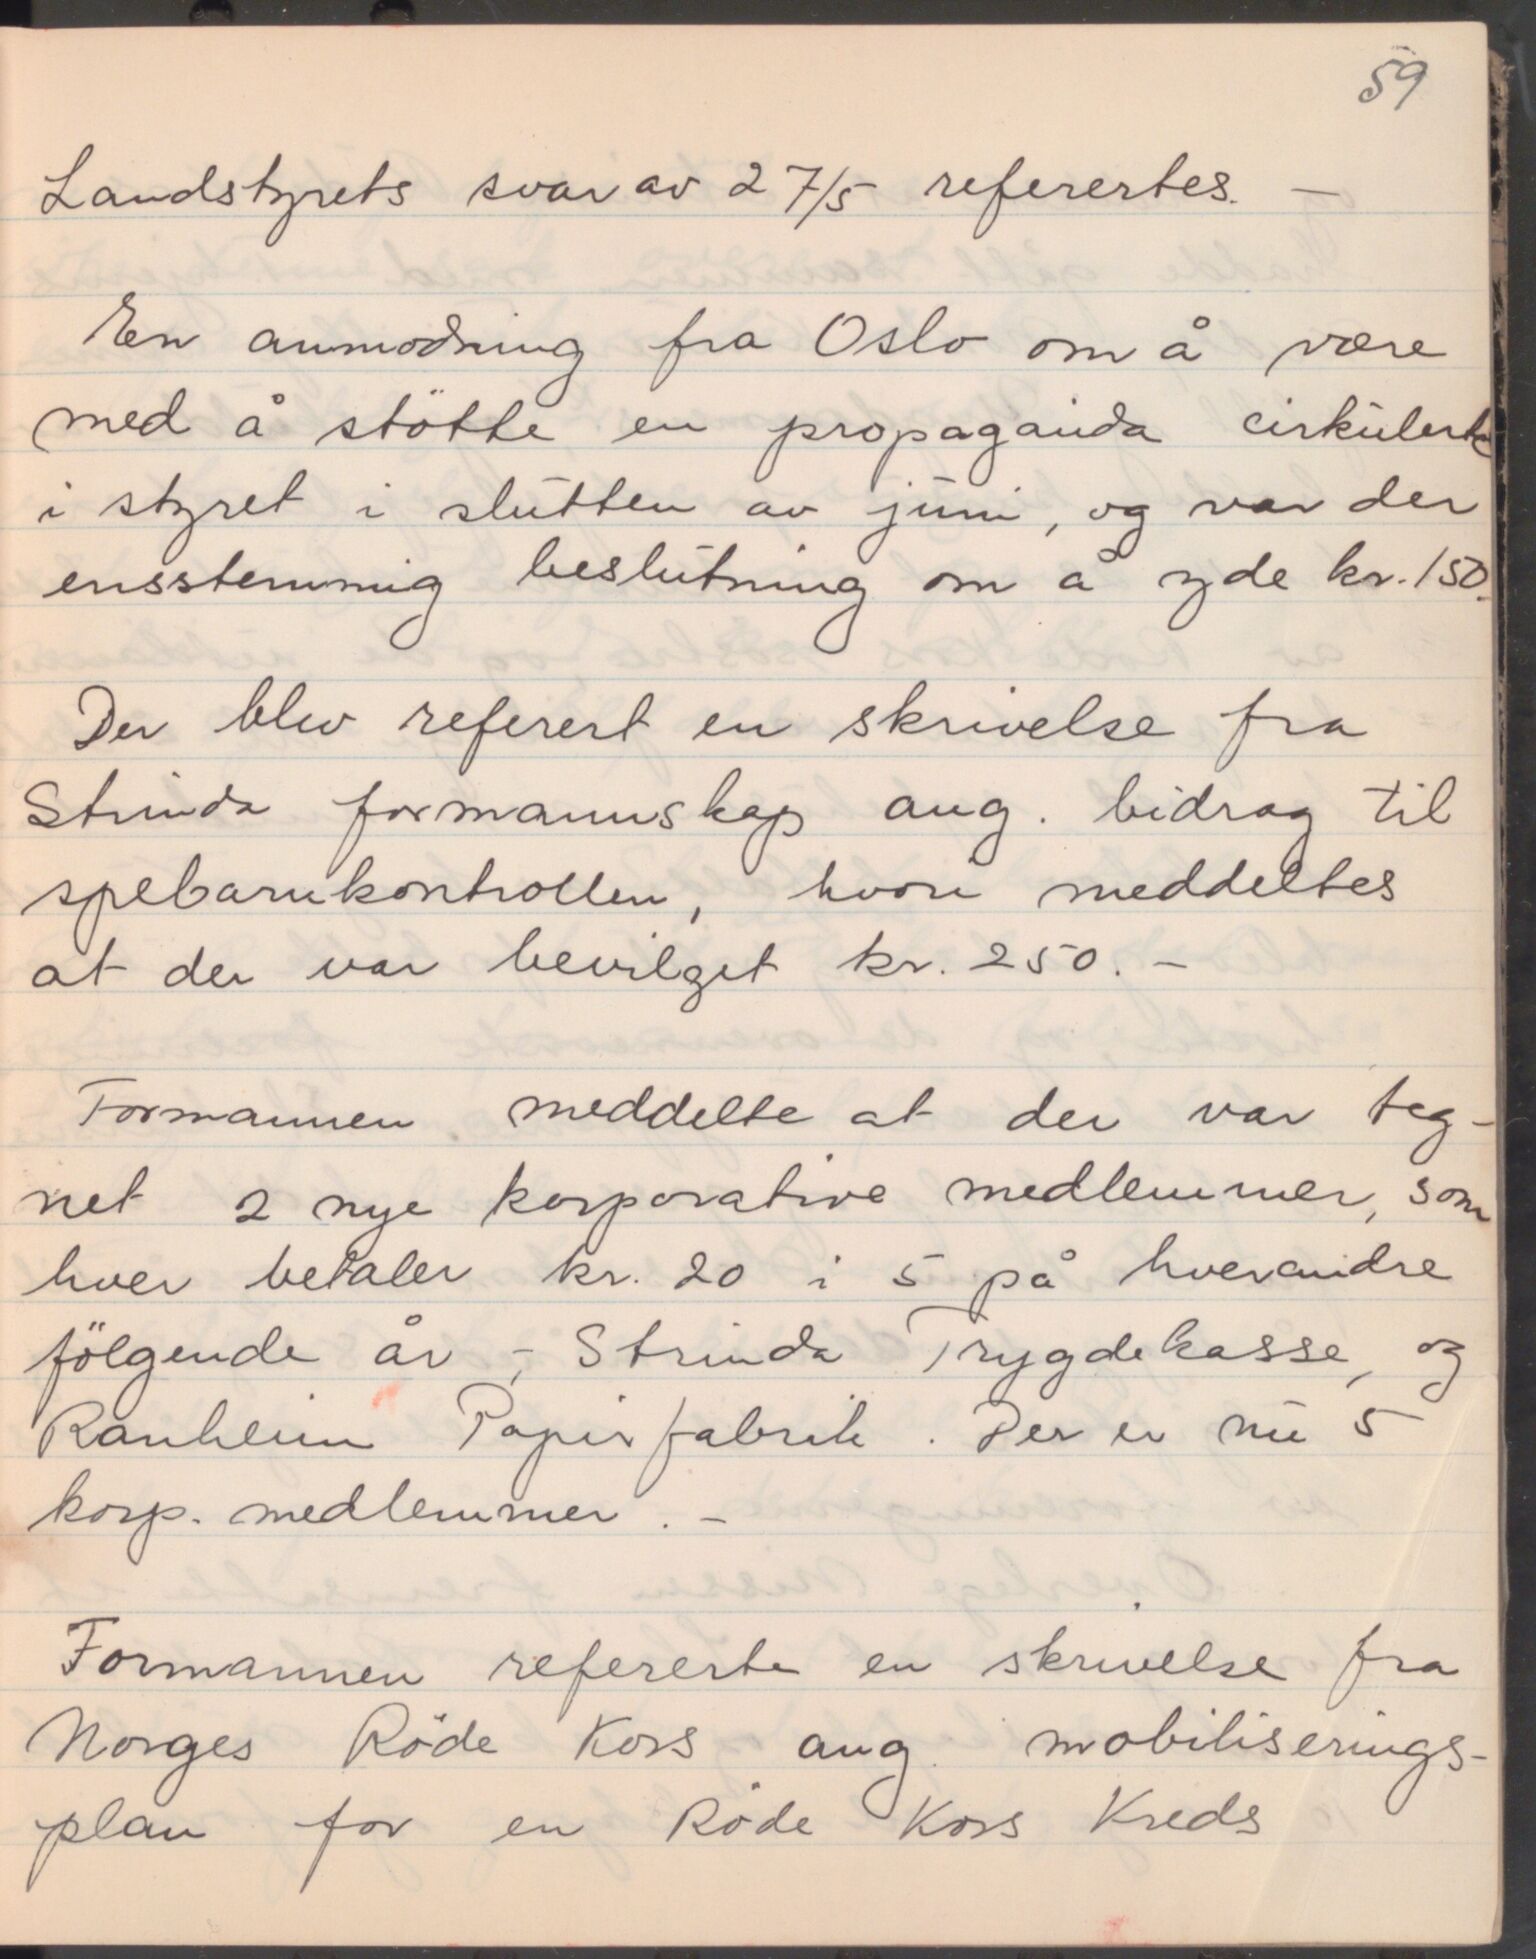 59
Landstyrets svar av 27/5 referertes. -
En anmodning fra Oslo om å være
med å støtte en propaganda cirkulerte
i styret i slutten av juni, og var der
ensstemmig beslutning om å yde kr. 150.-
Der blev referert en skrivelse fra
Strinda formannskap ang. bidrag til
spebarnkontrollen, hvori meddeltes
at der var bevilget kr. 250. -
Formannen meddelte at der var teg-
net 2 nye korporative medlemmer, som
hver betaler kr. 20 i 5 på hverandre
følgende år -; Strinda Trygdekasse, og
Ranheim Papirfabrik. Der er nu 5
korp. medlemmer. -
Formannen refererte en skrivelse fra
Norges Røde Kors ang. mobiliserings-
plan for en Røde Kors Kreds